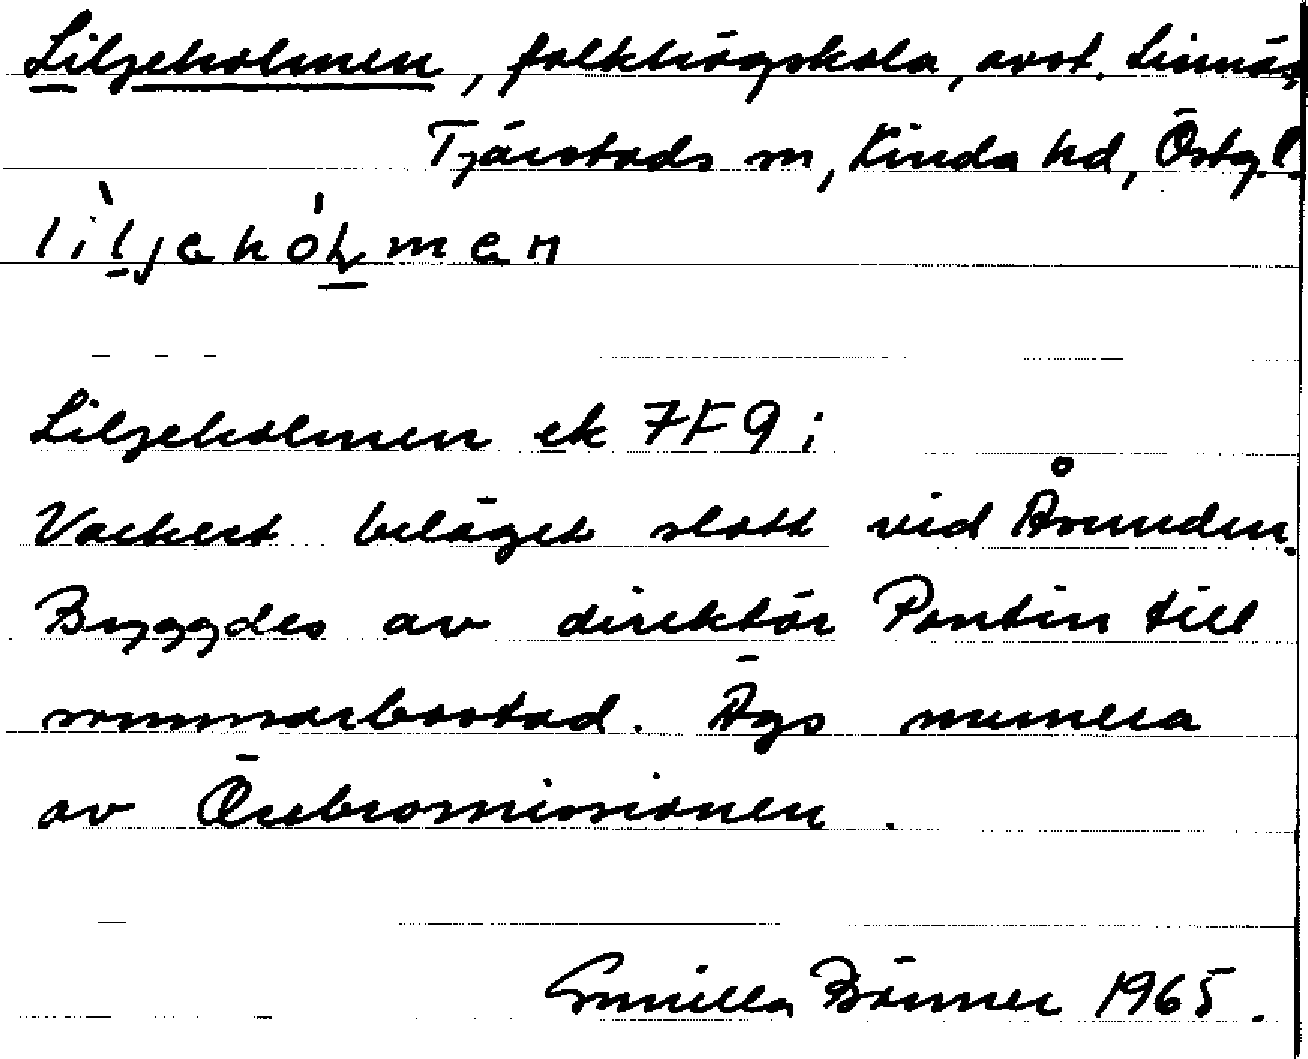 Liljeholmen, folkhögskola, avst. Linnäs
Tjärstads sn, Kinda hd, Östg.l.
lìljehólmen
Liljeholmen ek 7F9i
Vackert beläget slott vid Åsunden.
Byggdes av direktör Pontin till
sommarbostad. Ägs numera
av Örebromissionen.
Gunilla Börner 1965.